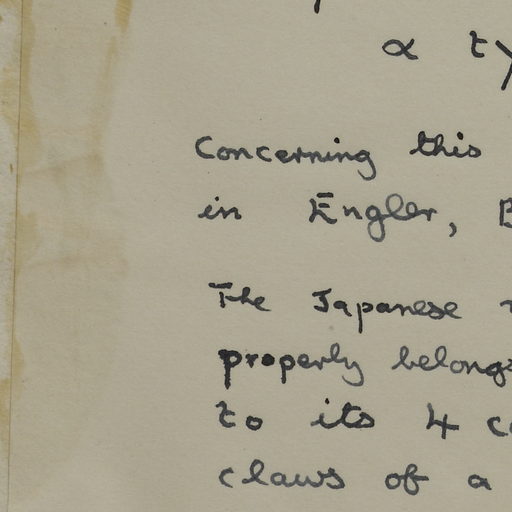 α ty
Concerning this
in Engler, B
The Japanese
properly belongs
to its 4 c
claws of a